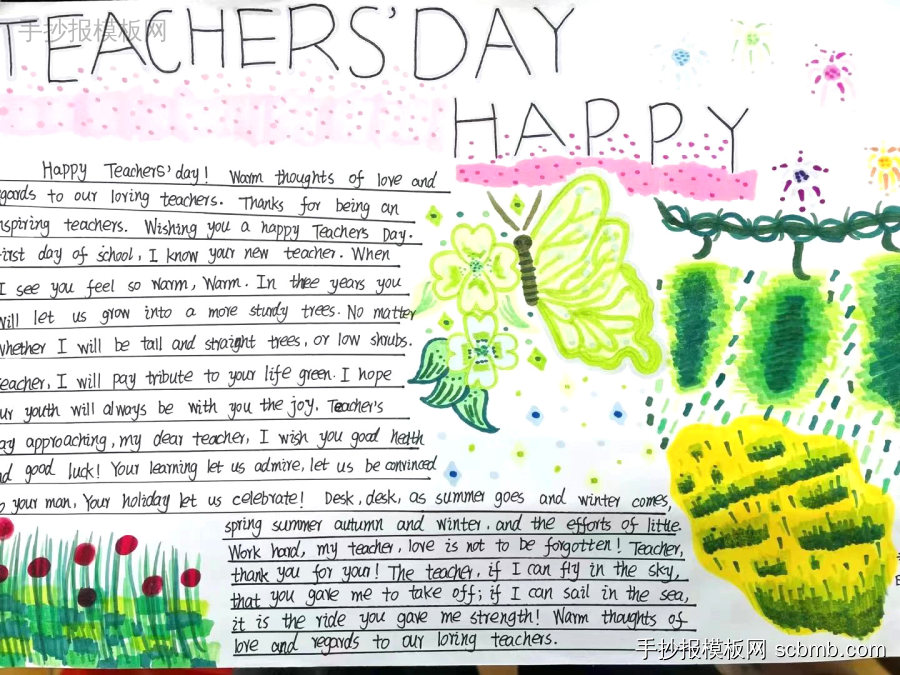 手抄报模板网
TEACHERS' DAY
HAPPY
Happy Teachers' day! Warm thoughts of love and
egards to our loving teachers. Thanks for being an
nspiring teachers. Wishing you a happy Teachers Day.
irst day of school, I know your new teacher. When
I see you feel so warm, Warm. In three years you
will let us grow into a more sturdy trees. No matter
whether I will be tall and straight trees, or low shrubs.
eacher, I will pay tribute to your life green. I hope
ur youth will always be with you the joy. Teacher's
ay approaching, my dear teacher, I wish you good health
nd good luck! Your learning let us admire, let us be convinced
o your man, Your holiday let us celebrate! Desk, desk, as summer goes and winter comes,
spring summer autumn and winter, and the efforts of little.
Work hard, my teacher, love is not to be forgotten! Teacher,
thank you for your! The teacher, if I can fly in the sky,
that you gave me to take off; if I can sail in the sea,
it is the ride you gave me strength! Warm thoughts of
love and regards to our loring teachers.
手抄报模板网 scbmb.com